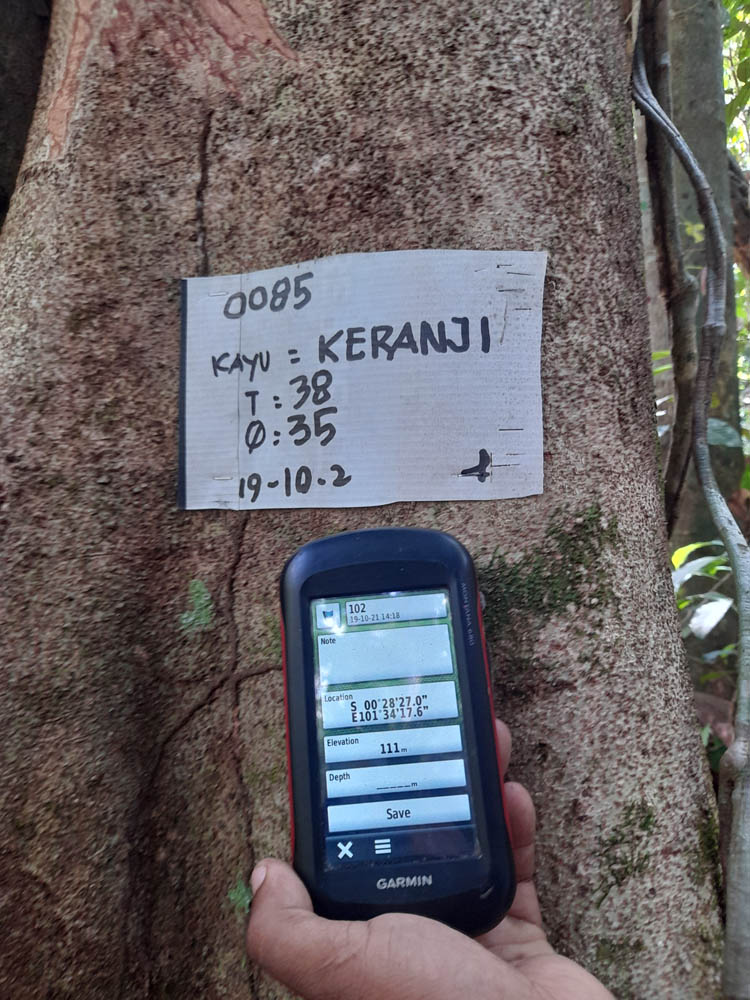 0085
KAYU = KERANJI
T : 38
Ø : 35
19-10-2
MONTANA 680
102
19-10-21 14:18
Note
Location
S 00°28'27.0"
E101°34'17.6"
Elevation
111 m
Depth
_____ m
Save
GARMIN